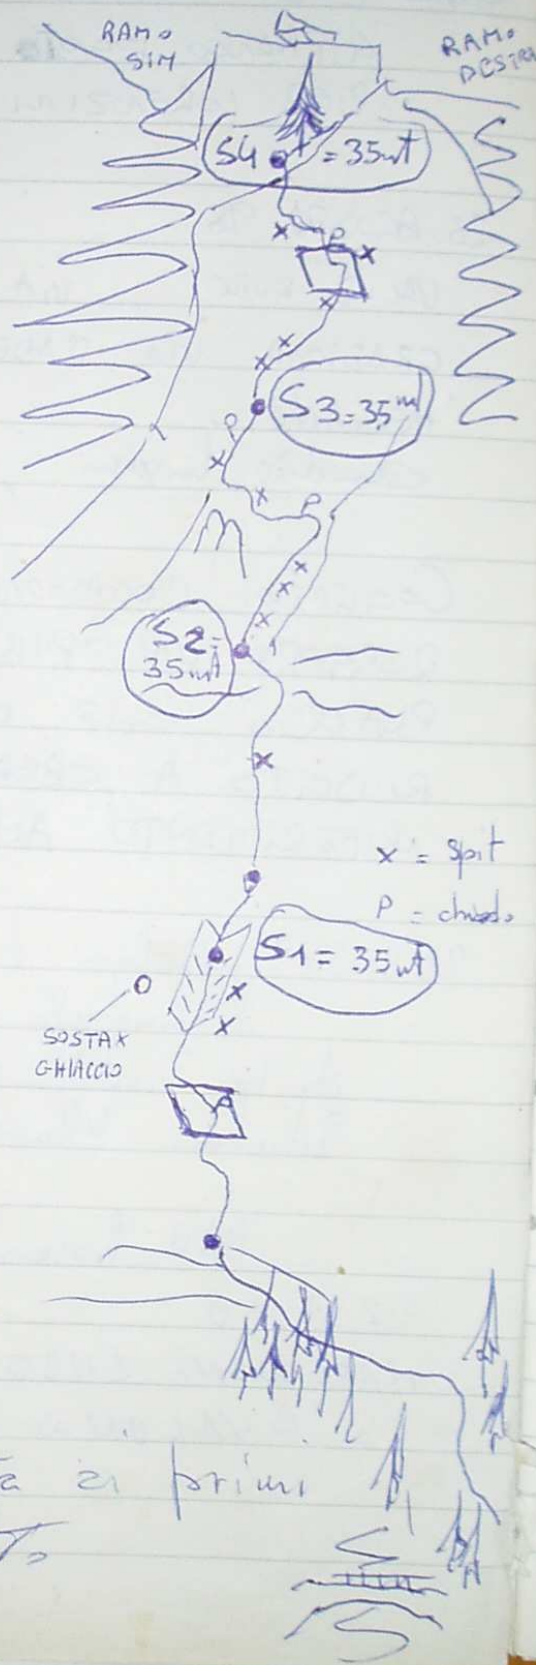 RAMO
SIN
RAMO
DESTRO
S4 = 35mt
P
x
x
x
x
x
S3=35mt
P
x
x
P
x
x
x
S2=
35mt
x
x = Spit
P = chiodo
S1 = 35mt
x
x
SOSTA X
GHIACCIO
ai primi